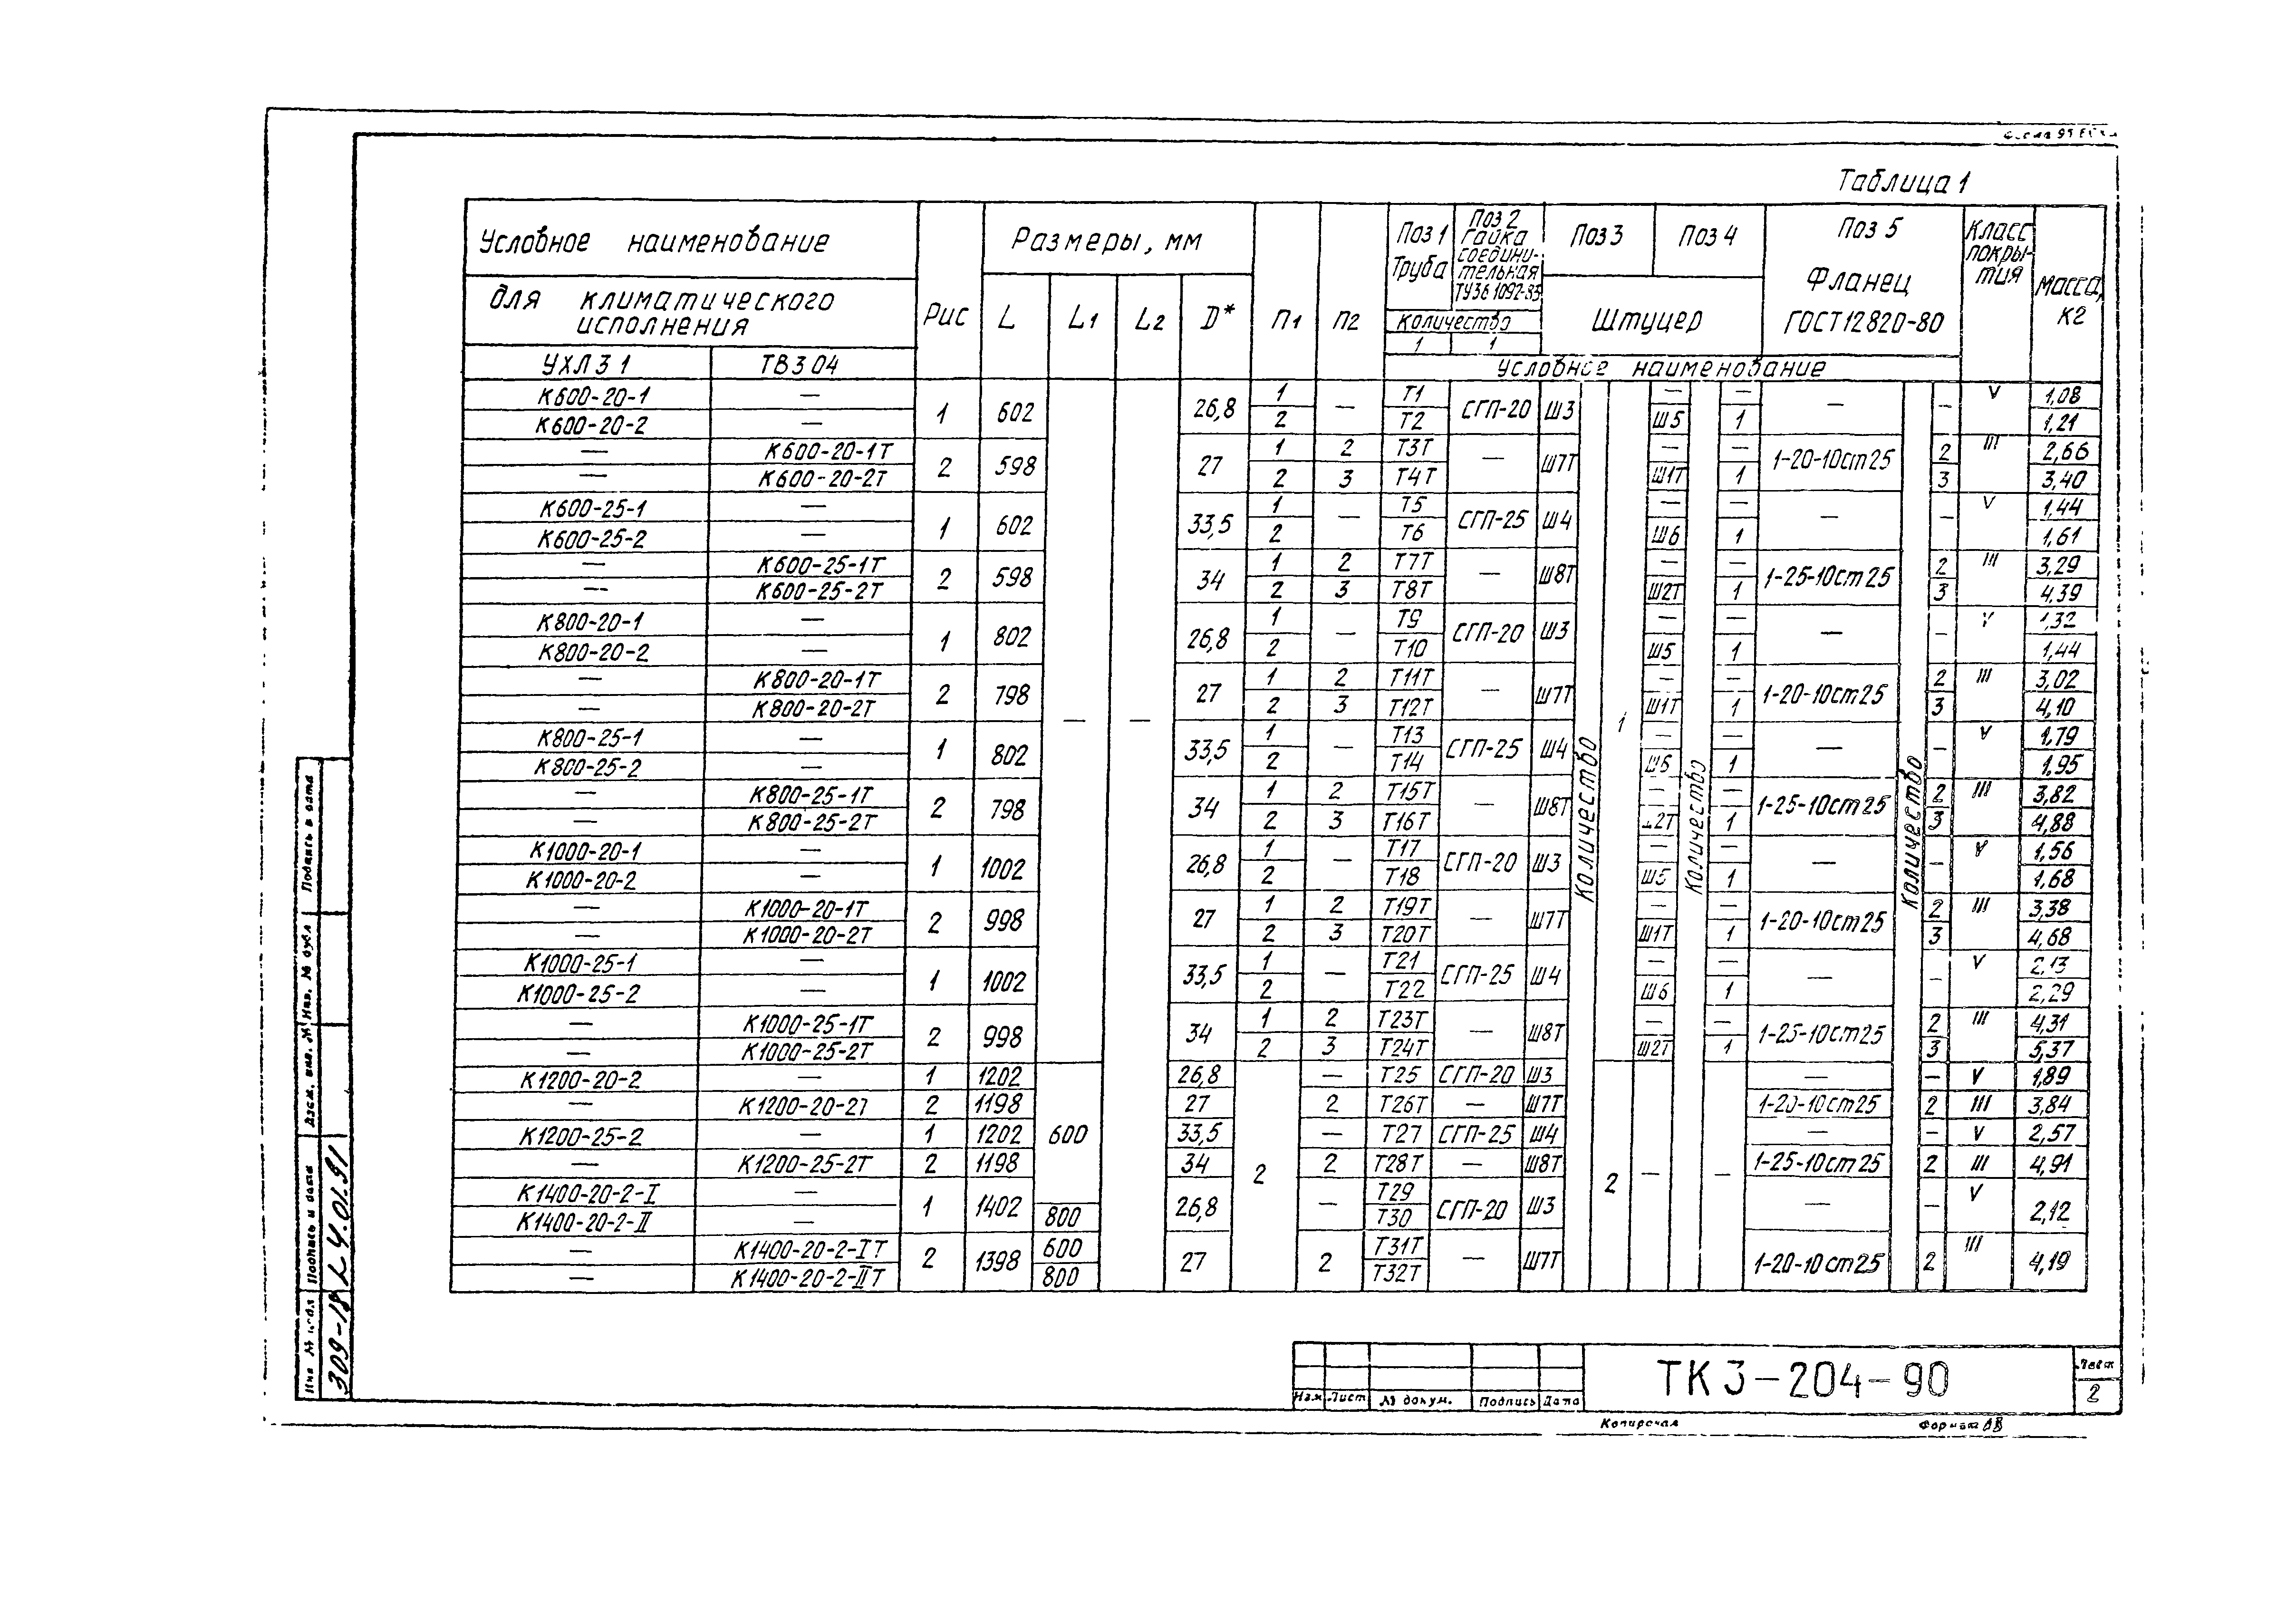 Таблица 1
Условное наименование
для климатического исполнения
УХЛ 3 1 ТВ3 04
Рис
Размеры, мм
L L1 L2 D*
п1 п2
Поз 1 Труба
Поз 2 Гайка соедини-тельная ТУ36 1092-85
Количество
1 1
Поз 3 Поз 4
Штуцер
Поз 5
Фланец
ГОСТ 12820-80
Условное наименование
Класс покры-тия
Масса, кг
Количество
Количество
Количество
К600-20-1 — 1 602 — — 26,8 1 — Т1 СГП-20 Ш3 1 — — — — V 1,08
К600-20-2 — 2 Т2 Ш5 1 1,21
— К600-20-1Т 2 598 27 1 2 Т3Т — Ш7Т — — 1-20-10ст25 2 III 2,66
— К600-20-2Т 2 3 Т4Т Ш1Т 1 3 3,40
К600-25-1 — 1 602 33,5 1 — Т5 СГП-25 Ш4 — — — — V 1,44
К600-25-2 — 2 Т6 Ш6 1 1,61
— К600-25-1Т 2 598 34 1 2 Т7Т — Ш8Т — — 1-25-10ст25 2 III 3,29
— К600-25-2Т 2 3 Т8Т Ш2Т 1 3 4,39
К800-20-1 — 1 802 26,8 1 — Т9 СГП-20 Ш3 — — — — V 1,32
К800-20-2 — 2 Т10 Ш5 1 1,44
— К800-20-1Т 2 798 27 1 2 Т11Т — Ш7Т — — 1-20-10ст25 2 III 3,02
— К800-20-2Т 2 3 Т12Т Ш1Т 1 3 4,10
К800-25-1 — 1 802 33,5 1 — Т13 СГП-25 Ш4 — — — — V 1,79
К800-25-2 — 2 Т14 Ш6 1 1,95
— К800-25-1Т 2 798 34 1 2 Т15Т — Ш8Т — — 1-25-10ст25 2 III 3,82
— К800-25-2Т 2 3 Т16Т Ш2Т 1 3 4,88
К1000-20-1 — 1 1002 26,8 1 — Т17 СГП-20 Ш3 — — — — V 1,56
К1000-20-2 — 2 Т18 Ш5 1 1,68
— К1000-20-1Т 2 998 27 1 2 Т19Т — Ш7Т — — 1-20-10ст25 2 III 3,38
— К1000-20-2Т 2 3 Т20Т Ш1Т 1 3 4,68
К1000-25-1 — 1 1002 33,5 1 — Т21 СГП-25 Ш4 — — — — V 2,13
К1000-25-2 — 2 Т22 Ш6 1 2,29
— К1000-25-1Т 2 998 34 1 2 Т23Т — Ш8Т — — 1-25-10ст25 2 III 4,31
— К1000-25-2Т 2 3 Т24Т Ш2Т 1 3 5,37
К1200-20-2 — 1 1202 600 26,8 2 — Т25 СГП-20 Ш3 2 — — — — V 1,89
— К1200-20-2Т 2 1198 27 2 Т26Т — Ш7Т 1-20-10ст25 2 III 3,84
К1200-25-2 — 1 1202 33,5 — Т27 СГП-25 Ш4 — — V 2,57
— К1200-25-2Т 2 1198 34 2 Т28Т — Ш8Т 1-25-10ст25 2 III 4,91
К1400-20-2-I — 1 1402 26,8 — Т29 СГП-20 Ш3 — — V 2,12
К1400-20-2-II — 800 Т30
— К1400-20-2-IТ 2 1398 600 27 2 Т31Т — Ш7Т 1-20-10ст25 2 III 4,19
— К1400-20-2-IIТ 800 Т32Т
Подпись и дата
Инв. № дубл
Взам. инв. №
Подпись и дата
24.01.91
Изм Лист № докум. Подпись Дата
ТК 3-204-90
Лист
2
Копировал